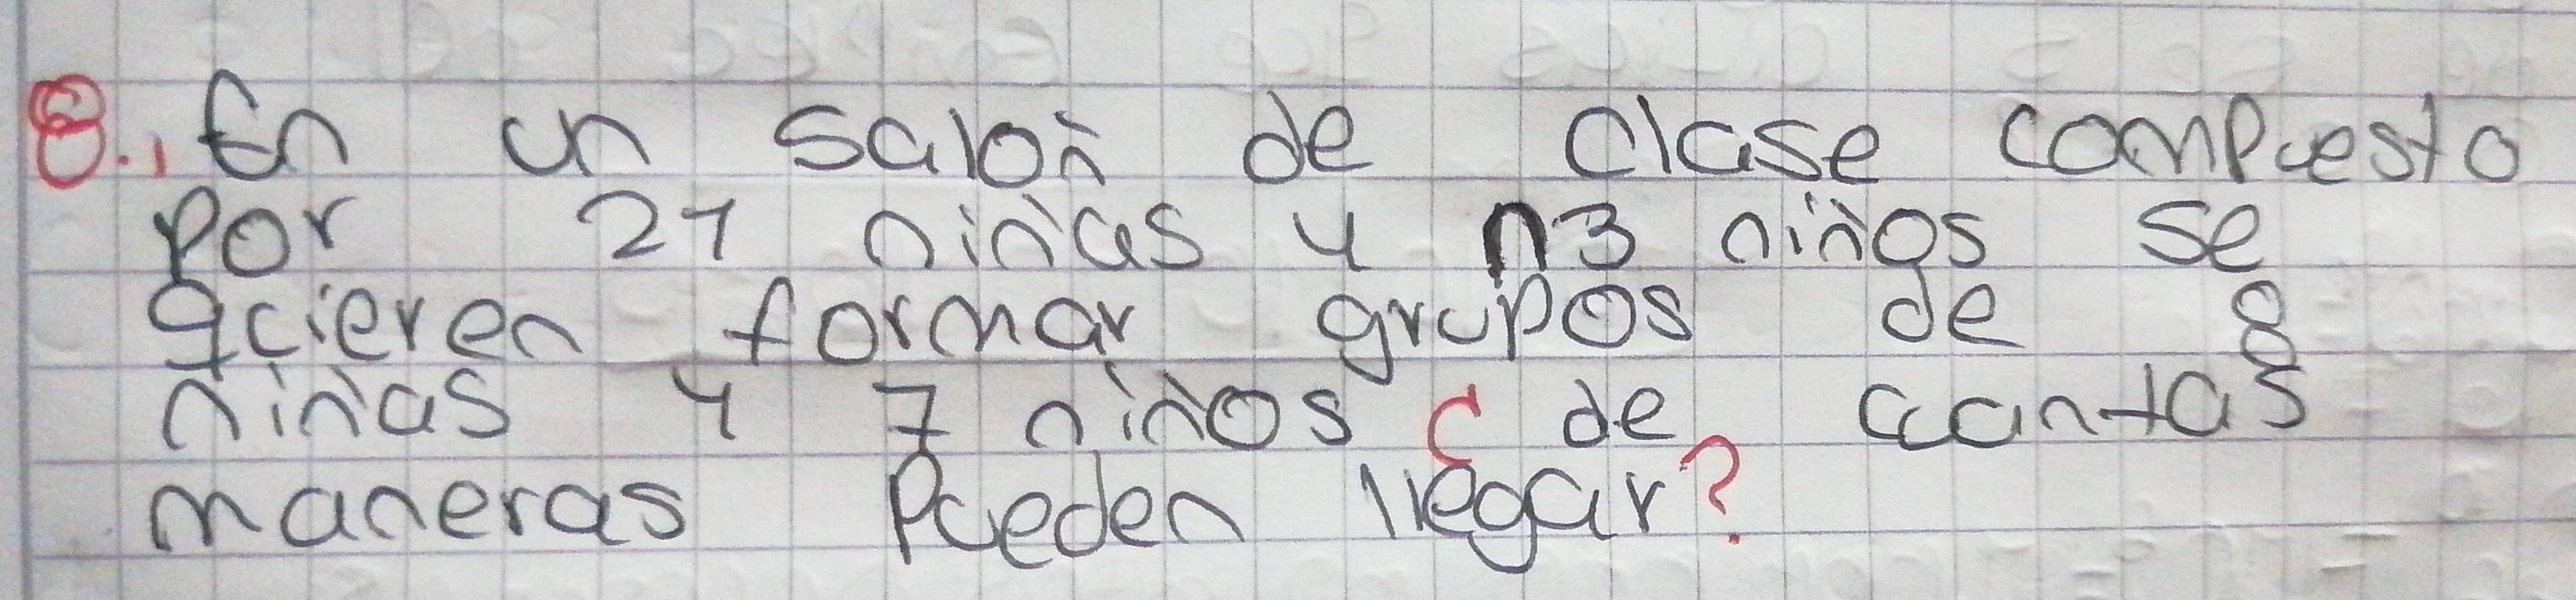 8., En un salón de clase compuesto
por 21 niñas y 13 niños se
quieren formar grupos de 8
niñas y 7 niños ¿ de cuantas
maneras Pueden llegar?